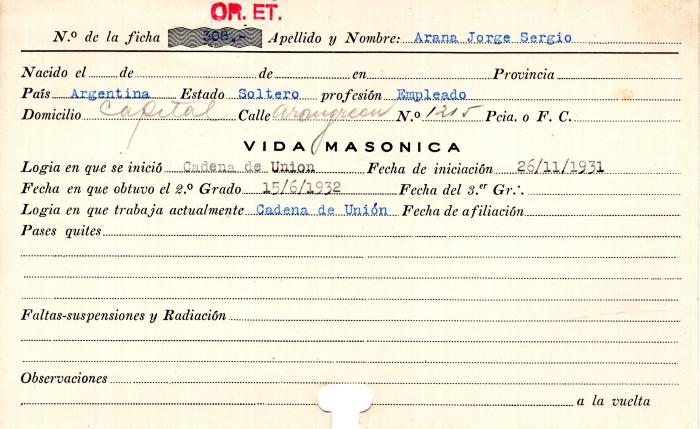 OR. ET.
N.º de la ficha 308.- Apellido y Nombre: Arana Jorge Sergio
Nacido el de de en Provincia
País Argentina Estado Soltero profesión Empleado
Domicilio Capital Calle N.º 1215 Pcia. o F. C.
VIDA MASONICA
Logia en que se inició Cadena de Union Fecha de iniciación 26/11/1931
Fecha en que obtuvo el 2.º Grado 15/6/1932 Fecha del 3.er Gr∴
Logia en que trabaja actualmente Cadena de Unión Fecha de afiliación
Pases quites
Faltas-suspensiones y Radiación
Observaciones
a la vuelta